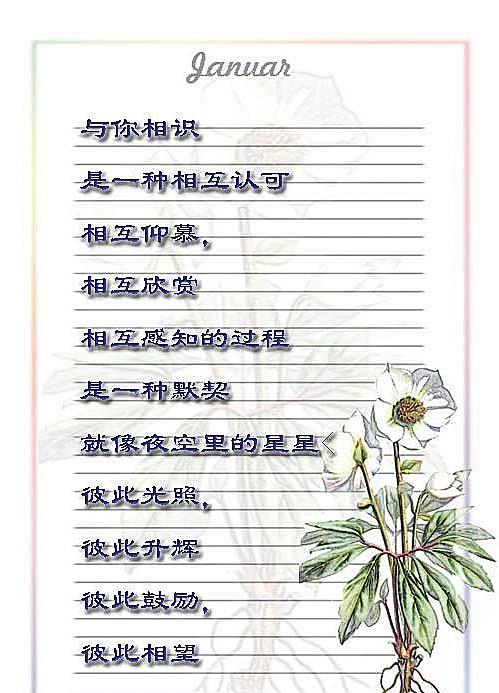 Januar
与你相识
是一种相互认可
相互仰慕,
相互欣赏
相互感知的过程
是一种默契
就像夜空里的星星
彼此光照,
彼此升辉
彼此鼓励,
彼此相望